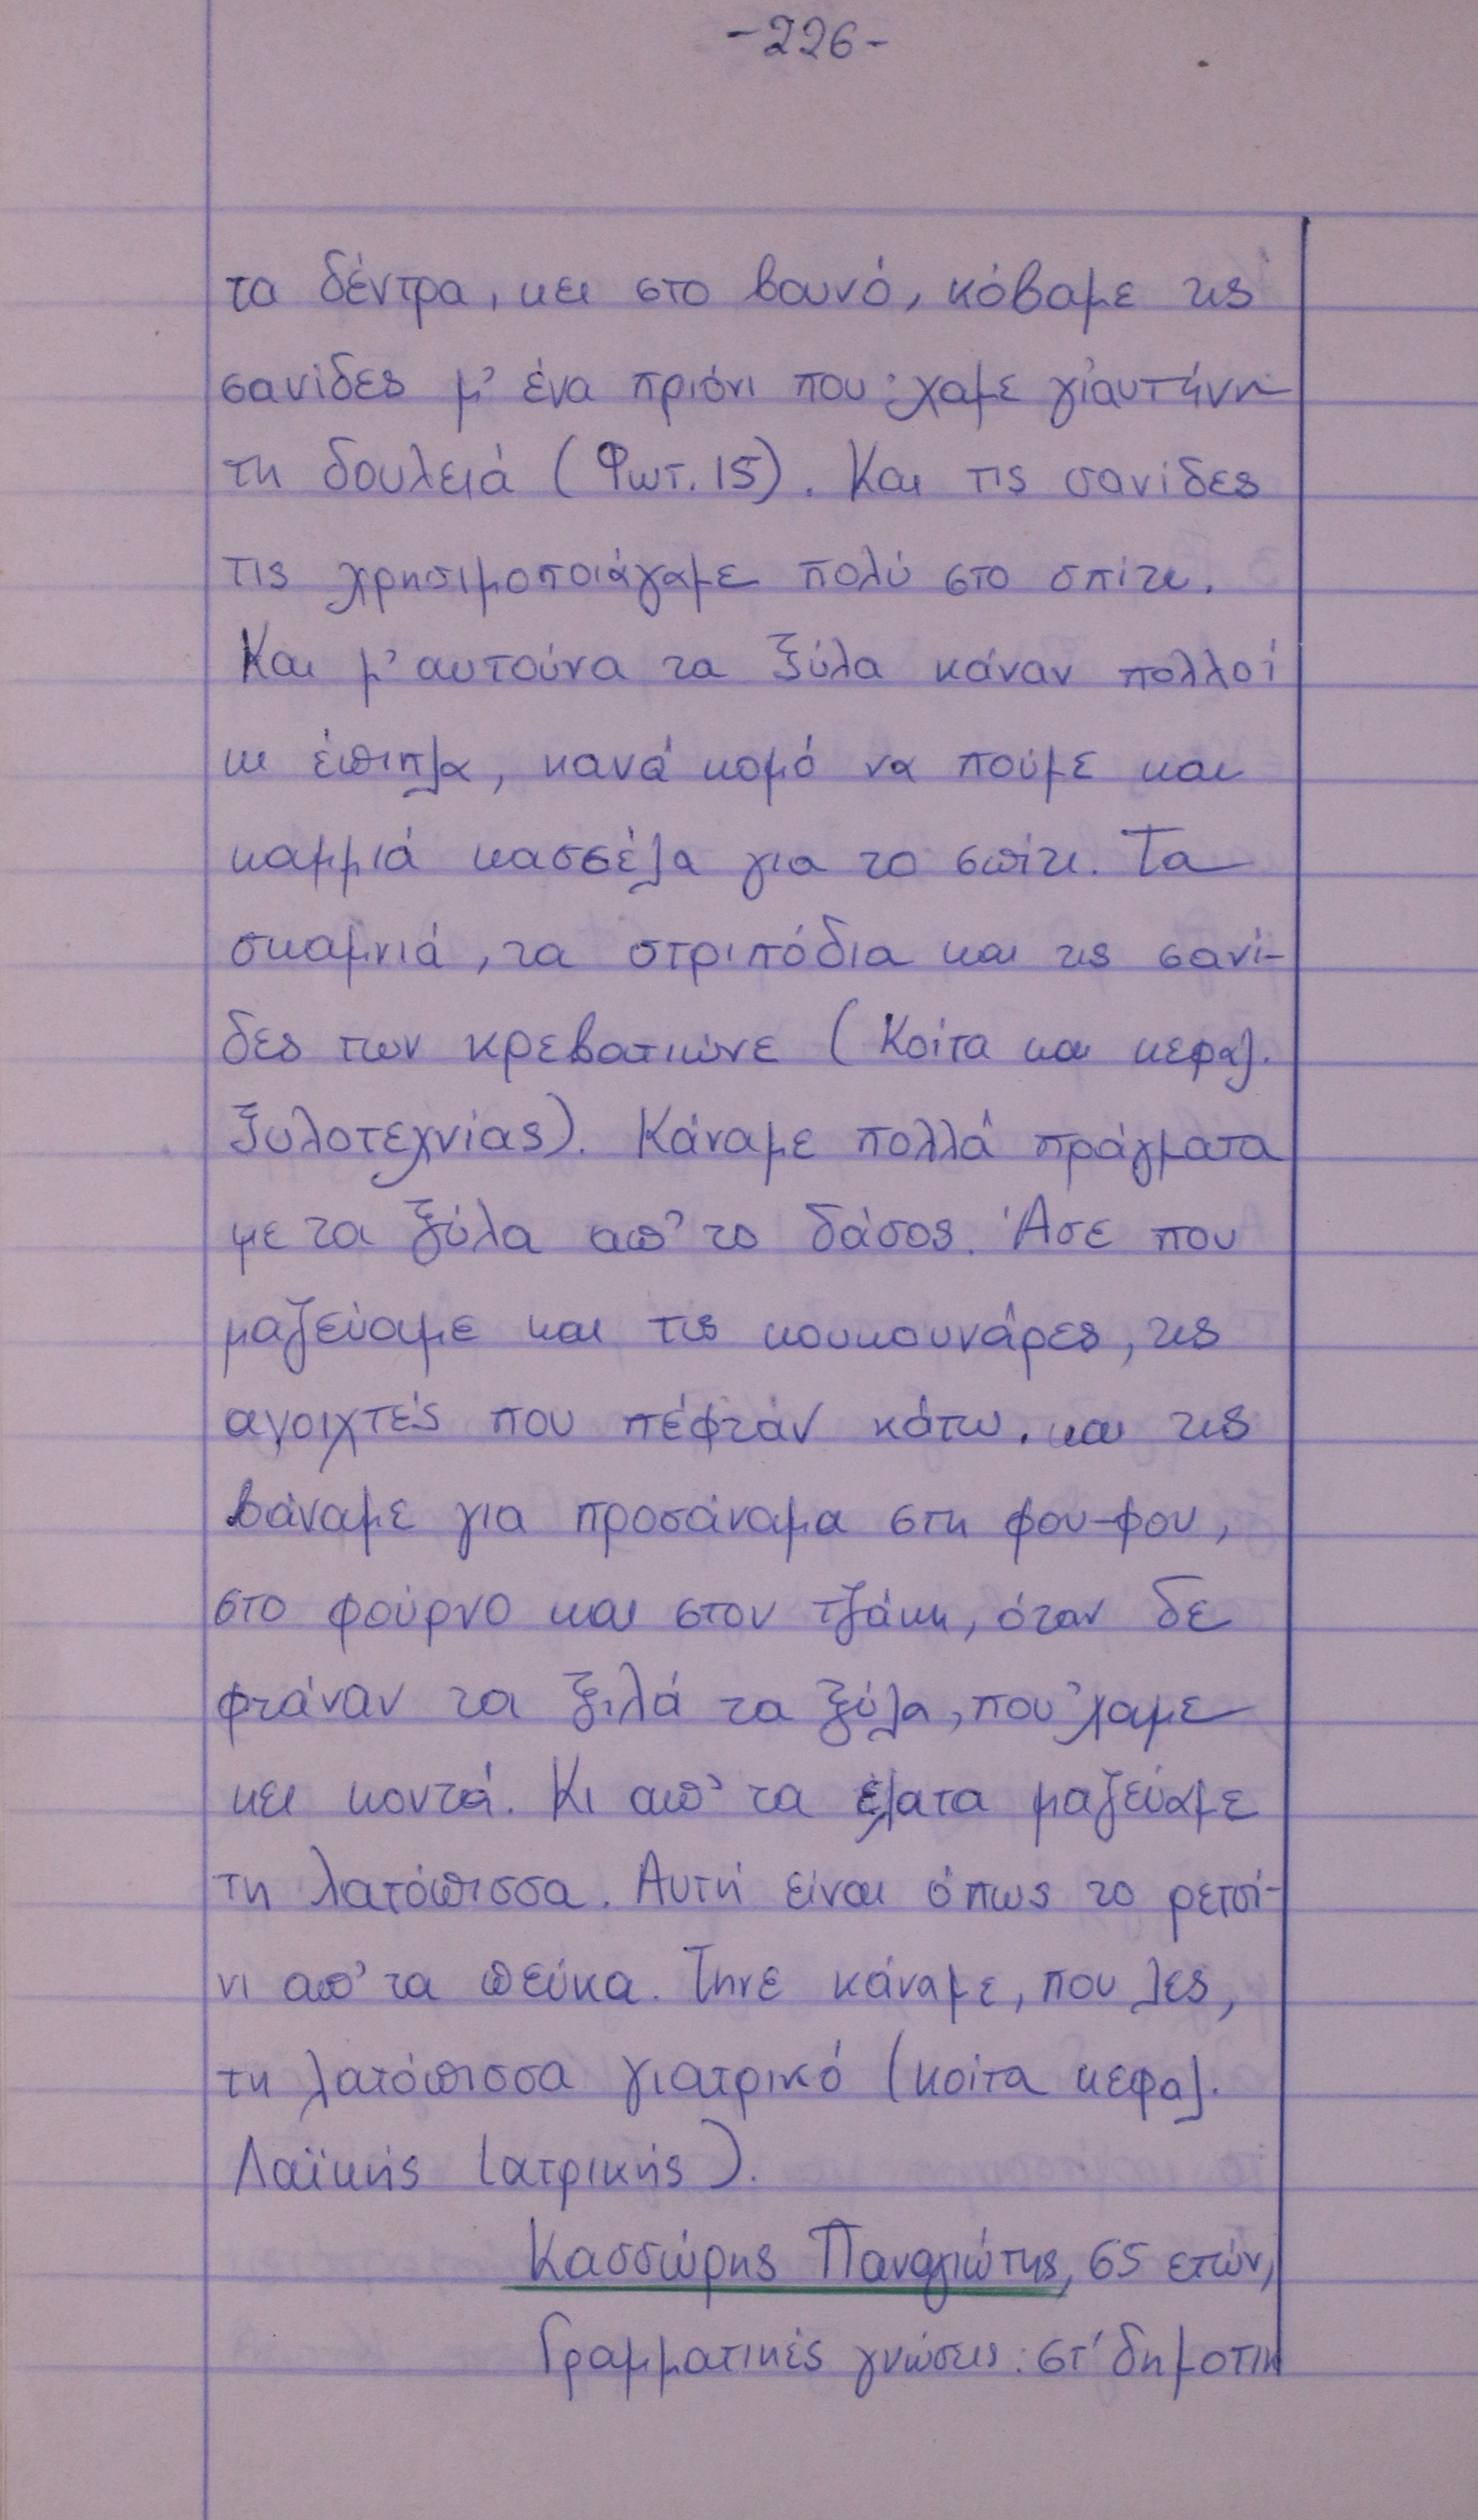 -226-
τα δέντρα, κει στο βουνό, κόβαμε τις
σανίδες μ' ένα πριόνι που 'χαμε γι'αυτήνη
τη δουλειά (Φωτ. 15). Και τις σανίδες
τις χρησιμοποιάγαμε πολύ στο σπίτι.
Και μ' αυτούνα τα ξύλα κάναν πολλοί
κι έπιπλα, κανά κομό να πούμε και
καμμιά κασσέλα για το σπίτι. Τα
σκαμνιά, τα στριπόδια και τις σανί-
δες των κρεβατιώνε (Κοίτα και κεφαλ.
Ξυλοτεχνίας). Κάναμε πολλά πράγματα
με τα ξύλα απ' το δάσος. Άσε που
μαζεύαμε και τις κουκουνάρες, τις
αγοιχτές που πέφταν κάτω. και τις
βάναμε για προσάναμα στη φου-φου,
στο φούρνο και στον τζάκη, όταν δε
φτάναν τα ξιλά τα ξύλα, που 'χαμε
κει κοντά. Κι απ' τα έλατα μαζεύαμε
τη λατόπισσα. Αυτή είναι όπως το ρετσί-
νι απ' τα πεύκα. Τηνε κάναμε, που λες,
τη λατόπισσα γιατρικό (κοίτα κεφαλ.
Λαϊκής Ιατρικής).
Κασσιώρης Παναγιώτης, 65 ετών,
Γραμματικές γνώσεις: στ' δημοτικ